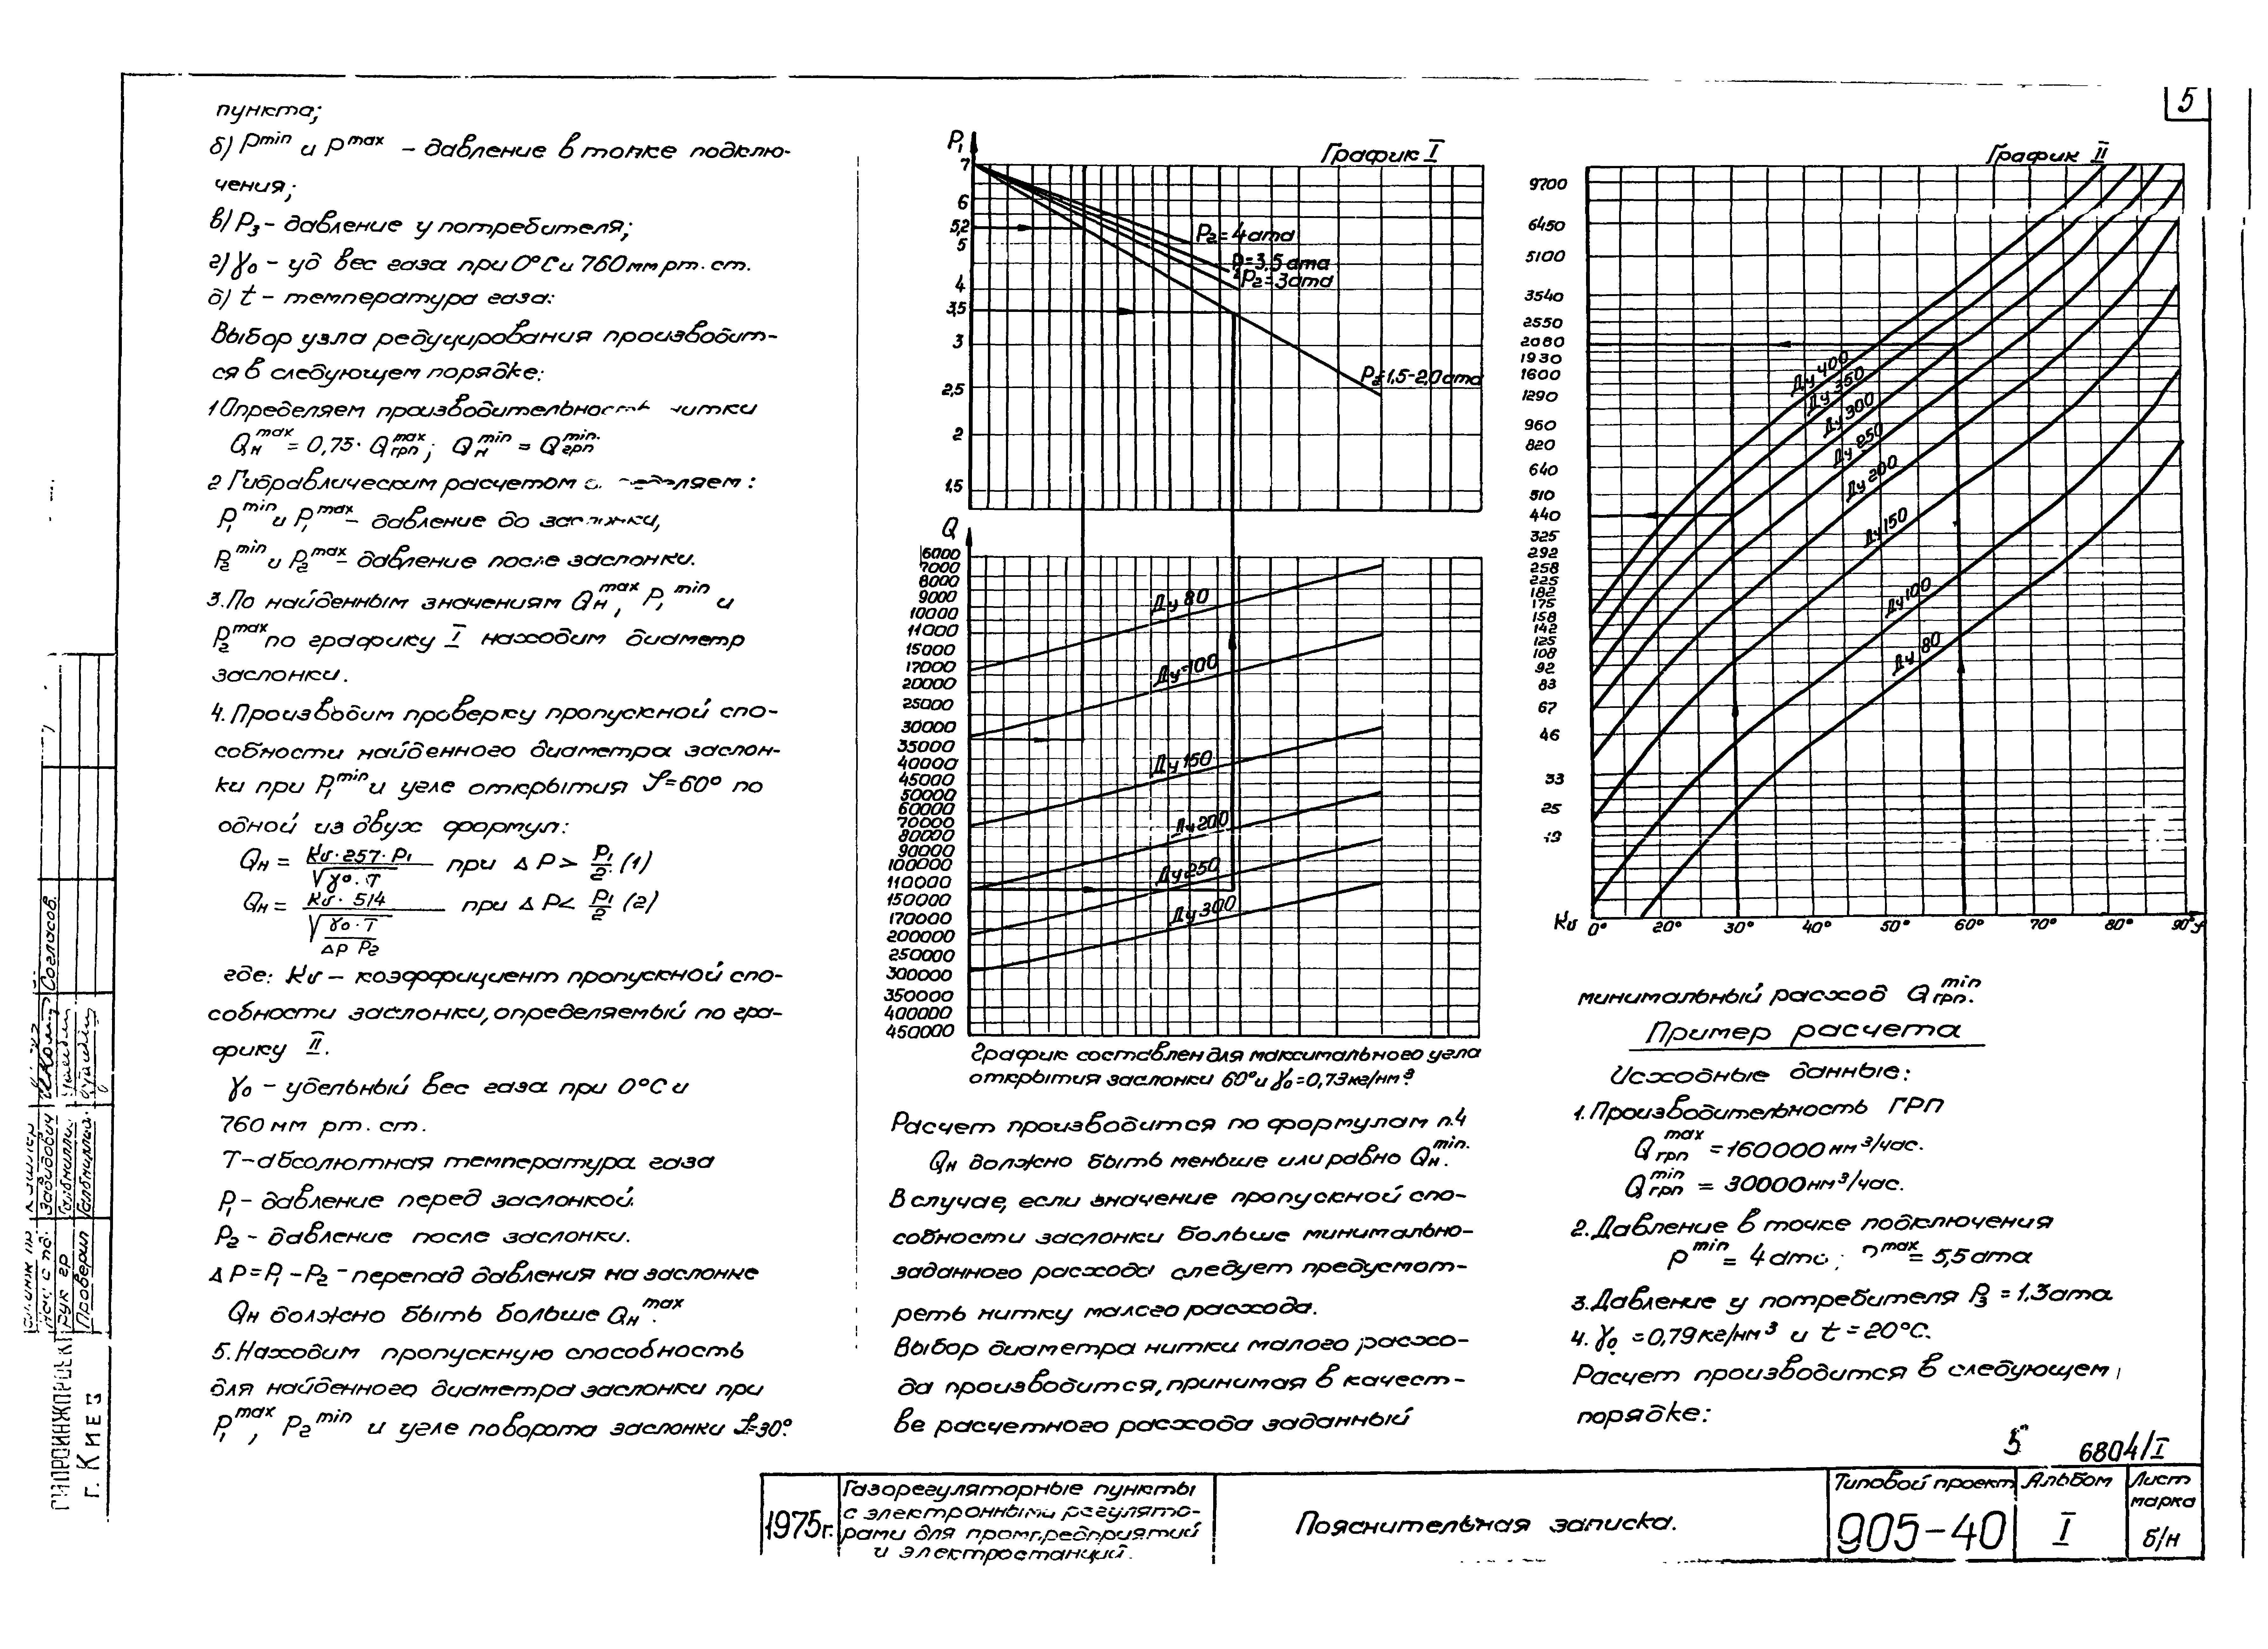 5
пункта;
б) Pmin и Pmax – давление в топке подклю-
чения;
в) P3 – давление у потребителя;
г) γ0 – уд вес газа при 0°С и 760 мм рт. ст.
д) t – температура газа:
Выбор узла редуцирования производит-
ся в следующем порядке:
1 Определяем производительность нитки
Qн max = 0,75 · Qгрп max; Qн min = Qгрп min.
2 Гидравлическим расчетом
P1 min и P1 max – давление до заслонки,
P2 min и P2 max – давление после заслонки.
3. По найденным значениям Qн max, P1 min и
P2 max по графику I находим диаметр
заслонки.
4. Производим проверку пропускной спо-
собности найденного диаметра заслон-
ки при P1 min и угле открытия φ=60° по
одной из двух формул:
Qн = Kv·257·P1 / √γ0·T при ΔP > P1/2 (1)
Qн = Kv·514 / √(γ0·T / ΔP P2) при ΔP < P1/2 (2)
где: Kv – коэффициент пропускной спо-
собности заслонки, определяемый по гра-
фику II.
γ0 – удельный вес газа при 0°С и
760 мм рт. ст.
T – абсолютная температура газа
P1 – давление перед заслонкой.
P2 – давление после заслонки.
ΔP = P1 – P2 – перепад давления на заслонке
Qн должно быть больше Qн max.
5. Находим пропускную способность
для найденного диаметра заслонки при
P1 max, P2 min и угле поворота заслонки φ=30°.
График I
P1
7
6
5,2
5
4
3,5
3
2,5
2
1,5
P2=4ата
P2=3,5ата
P2=3ата
P2=1,5-2,0ата
Q
6000
7000
8000
9000
10000
11000
15000
17000
20000
25000
30000
35000
40000
45000
50000
60000
70000
80000
90000
100000
110000
150000
170000
200000
250000
300000
350000
400000
450000
Ду 80
Ду 100
Ду 150
Ду 200
Ду 250
Ду 300
График составлен для максимального угла
открытия заслонки 60° и γ0=0,73 кг/нм³
Расчет производится по формулам п.4
Qн должно быть меньше или равно Qн min.
В случае, если значение пропускной спо-
собности заслонки больше минимально-
заданного расхода следует предусмот-
реть нитку малого расхода.
Выбор диаметра нитки малого расхо-
да производится, принимая в качест-
ве расчетного расхода заданный
График II
9700
6450
5100
3540
2550
2080
1930
1600
1290
960
820
640
510
440
325
292
258
225
182
175
158
142
125
108
92
83
67
46
33
25
Ду 400
Ду 350
Ду 300
Ду 250
Ду 200
Ду 150
Ду 100
Ду 80
Kv 0° 20° 30° 40° 50° 60° 70° 80° 90° φ
минимальный расход Qгрп min.
Пример расчета
Исходные данные:
1. Производительность ГРП
Qгрп max = 160000 нм³/час.
Qгрп min = 30000 нм³/час.
2. Давление в точке подключения
P min = 4 ата; P max = 5,5 ата
3. Давление у потребителя P3 = 1,3 ата
4. γ0 = 0,79 кг/нм³ и t = 20°С.
Расчет производится в следующем
порядке:
5 6804/I
1975г.
Газорегуляторные пункты
с электронными регулято-
рами для промпредприятий
и электростанций.
Пояснительная записка.
Типовой проект
905-40
Альбом
I
Лист
марка
б/н
Согласов.
Рук гр
Проверил
г. Киев